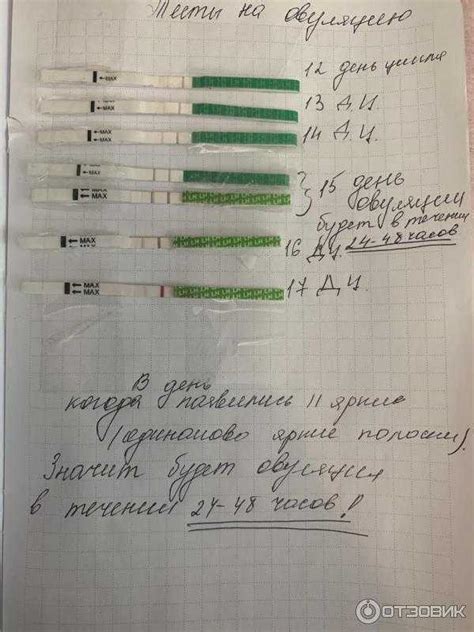 Тесты на овуляцию
←MAX 12 день цикла
←MAX 13 Д.Ц.
←MAX 14 Д.Ц.
←MAX
←MAX LH LH LH 15 день
овуляции
будет в течении
24-48 часов
←MAX LH LH LH 16 Д.Ц.
←MAX
←MAX LH LH LH 17 Д.Ц.
В день
когода паявились II яркие
(одинаково яркие полоски).
Значит будет овуляция
в течении 24-48 часов!
ОТЗОВИК